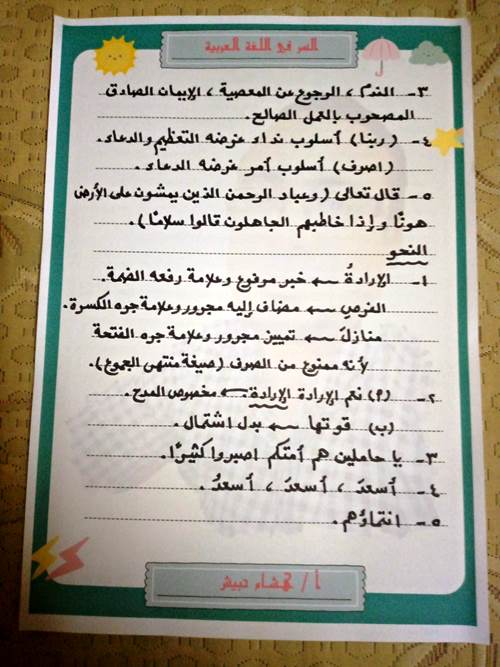 السر في اللغة العربية
٣- الندم ، الرجوع عن المعصية ، الإيمان الصادق
المصحوب بالعمل الصالح.
٤- (ربنا) أسلوب نداء غرضه التعظيم والدعاء.
(اصرف) أسلوب أمر غرضه الدعاء.
٥- قال تعالى (وعباد الرحمن الذين يمشون على الأرض
هونًا وإذا خاطبهم الجاهلون قالوا سلامًا).
النحو
١- الإرادةُ ← خبر مرفوع وعلامة رفعه الضمة.
الفرصِ ← مضاف إليه مجرور وعلامة جره الكسرة.
منازلَ ← تمييز مجرور وعلامة جره الفتحة
لأنه ممنوع من الصرف (صيغة منتهى الجموع).
٢- (٩) نعم الإرادة الإرادة. ← مخصوص المدح.
(ب) قوتها ← بدل اشتمال.
٣- يا حاملين هم أمتكم اصبروا كثيرًا.
٤- أسعدَ ، أسعدَ ، أسعدُ.
٥- انتماؤهم.
أ / هشام حبيش